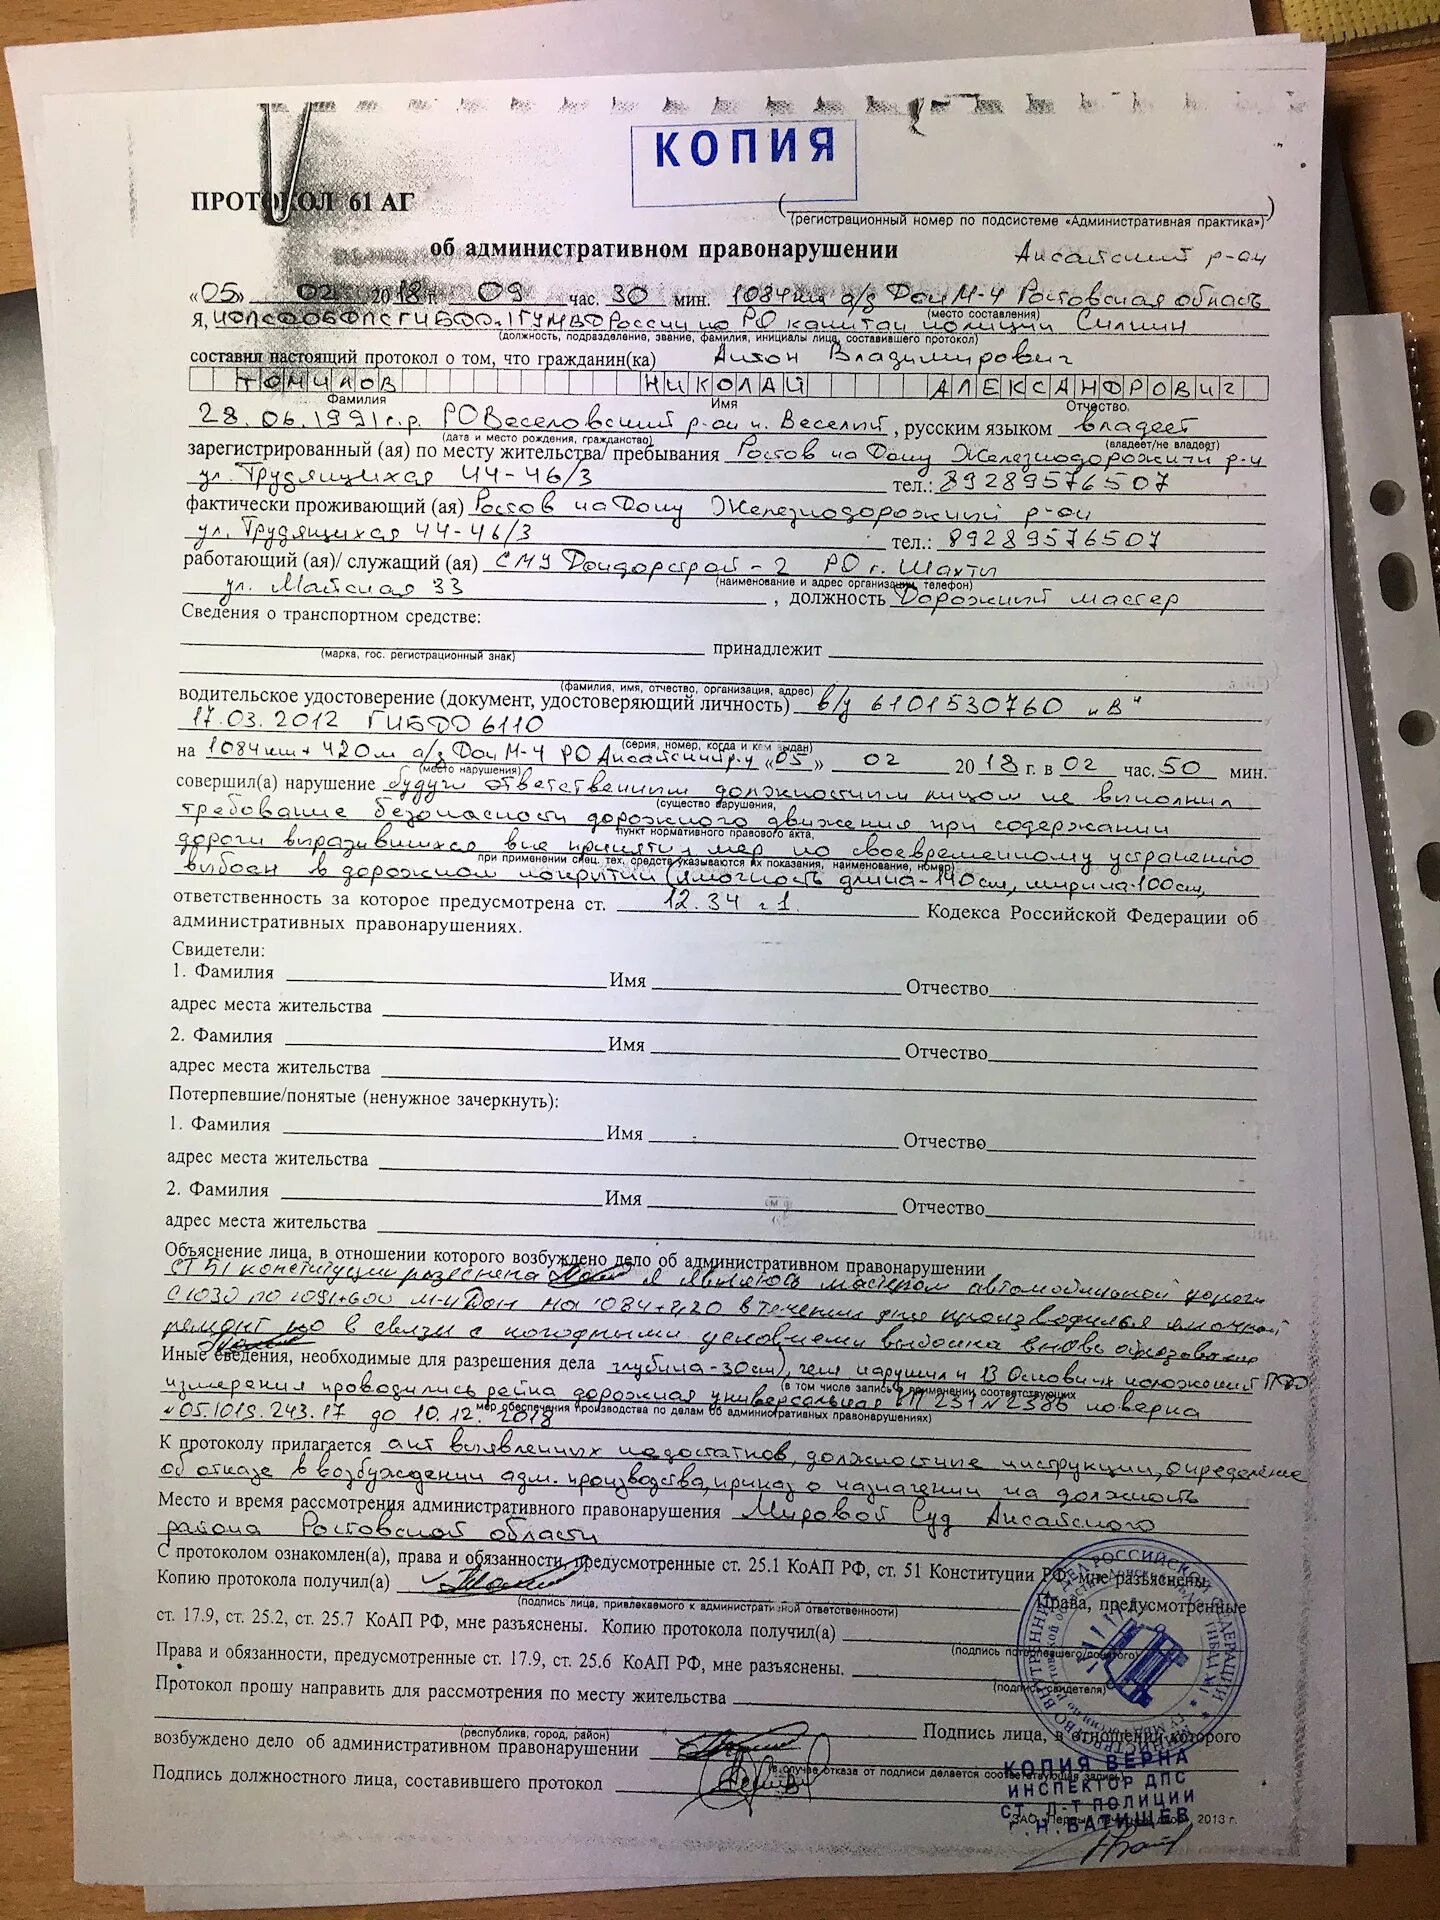 КОПИЯ
ПРОТОКОЛ 61 АГ
(регистрационный номер по подсистеме «Административная практика»)
об административном правонарушении
Аксайский р-он
«05» 02 2018 г. 09 час. 30 мин. 1084км а/д Дон М-4 Ростовская область
(место составления)
Я, ГИБДД ГУ МВД России по РО капитан полиции
(должность, подразделение, звание, фамилия, инициалы лица, составившего протокол)
составил настоящий протокол о том, что гражданин(ка) Антон Владимирович
ТОМИЛОВ НИКОЛАЙ АЛЕКСАНДРОВИЧ
Фамилия Имя Отчество
28.06.1991г.р. РО Веселовский р-он п. Веселый, русским языком владеет
(дата и место рождения, гражданство) (владеет/не владеет)
зарегистрированный (ая) по месту жительства/ пребывания Ростов на Дону Железнодорожный р-н
ул. Трудящихся 44-46/3 тел.: 89289576507
фактически проживающий (ая) Ростов на Дону Железнодорожный р-он
ул. Трудящихся 44-46/3 тел.: 89289576507
работающий (ая)/ служащий (ая) СМУ Дондорстрой-2 РО г. Шахты
(наименование и адрес организации, телефон)
ул. Майская 33, должность Дорожный мастер
Сведения о транспортном средстве:
принадлежит
(марка, гос. регистрационный знак)
(фамилия, имя, отчество, организация, адрес)
водительское удостоверение (документ, удостоверяющий личность) в/у 6101530760 „В"
17.03.2012 ГИБДД 6110
(серия, номер, когда и кем выдан)
на 1084км+420м а/д Дон М-4 РО Аксайский р-н «05» 02 2018 г. в 02 час. 50 мин.
(место нарушения)
совершил(а) нарушение будучи ответственным должностным лицом не выполнил
(существо нарушения,
требование безопасности дорожного движения при содержании
пункт нормативного правового акта,
дороги выразившихся в не принятии мер по своевременному устранению
при применении спец. тех. средств указываются их показания, наименование, номер)
выбоен в дорожном покрытии длина-140см, ширина-100см,
ответственность за которое предусмотрена ст. 12.34 ч 1. Кодекса Российской Федерации об
административных правонарушениях.
Свидетели:
1. Фамилия Имя Отчество
адрес места жительства
2. Фамилия Имя Отчество
адрес места жительства
Потерпевшие/понятые (ненужное зачеркнуть):
1. Фамилия Имя Отчество
адрес места жительства
2. Фамилия Имя Отчество
адрес места жительства
Объяснение лица, в отношении которого возбуждено дело об административном правонарушении
СТ 51 конституции разеснена я являюсь мастером автомобильной дороги
с 1030 по 1091+600 М-4 Дон на 1084+420 в течении дня производилься ямочный
ремонт но в связи с погодными условиеми выбоина вновь
Иные сведения, необходимые для разрешения дела глубина-30см), чем нарушил п 13 Основных положений ПДД
(в том числе запись о применении соответствующих
измерения проводились рейка дорожная универсальная КП 231 N2386 поверка
мер обеспечения производства по делам об административных правонарушениях)
№05.1019.243.17 до 10.12.2018
К протоколу прилагается акт выявленных недостатков, должностные инструкции, определение
об отказе в возбуждении адм. производства, приказ о назначении на должность
Место и время рассмотрения административного правонарушения Мировой Суд Аксайского
района Ростовской области
С протоколом ознакомлен(а), права и обязанности, предусмотренные ст. 25.1 КоАП РФ, ст. 51 Конституции РФ, мне разъяснены.
Копию протокола получил(а) Права, предусмотренные
(подпись лица, привлекаемого к административной ответственности)
ст. 17.9, ст. 25.2, ст. 25.7 КоАП РФ, мне разъяснены. Копию протокола получил(а)
(подпись потерпевшего/понятого)
Права и обязанности, предусмотренные ст. 17.9, ст. 25.6 КоАП РФ, мне разъяснены.
(подпись свидетеля)
Протокол прошу направить для рассмотрения по месту жительства
(республика, город, район)
Подпись лица, в отношении которого
возбуждено дело об административном правонарушении
(в случае отказа от подписи делается соответствующая запись)
Подпись должностного лица, составившего протокол
КОПИЯ ВЕРНА
ИНСПЕКТОР ДПС
СТ. Л-Т ПОЛИЦИИ
Г.Н. БАТИЩЕВ
2013 г.